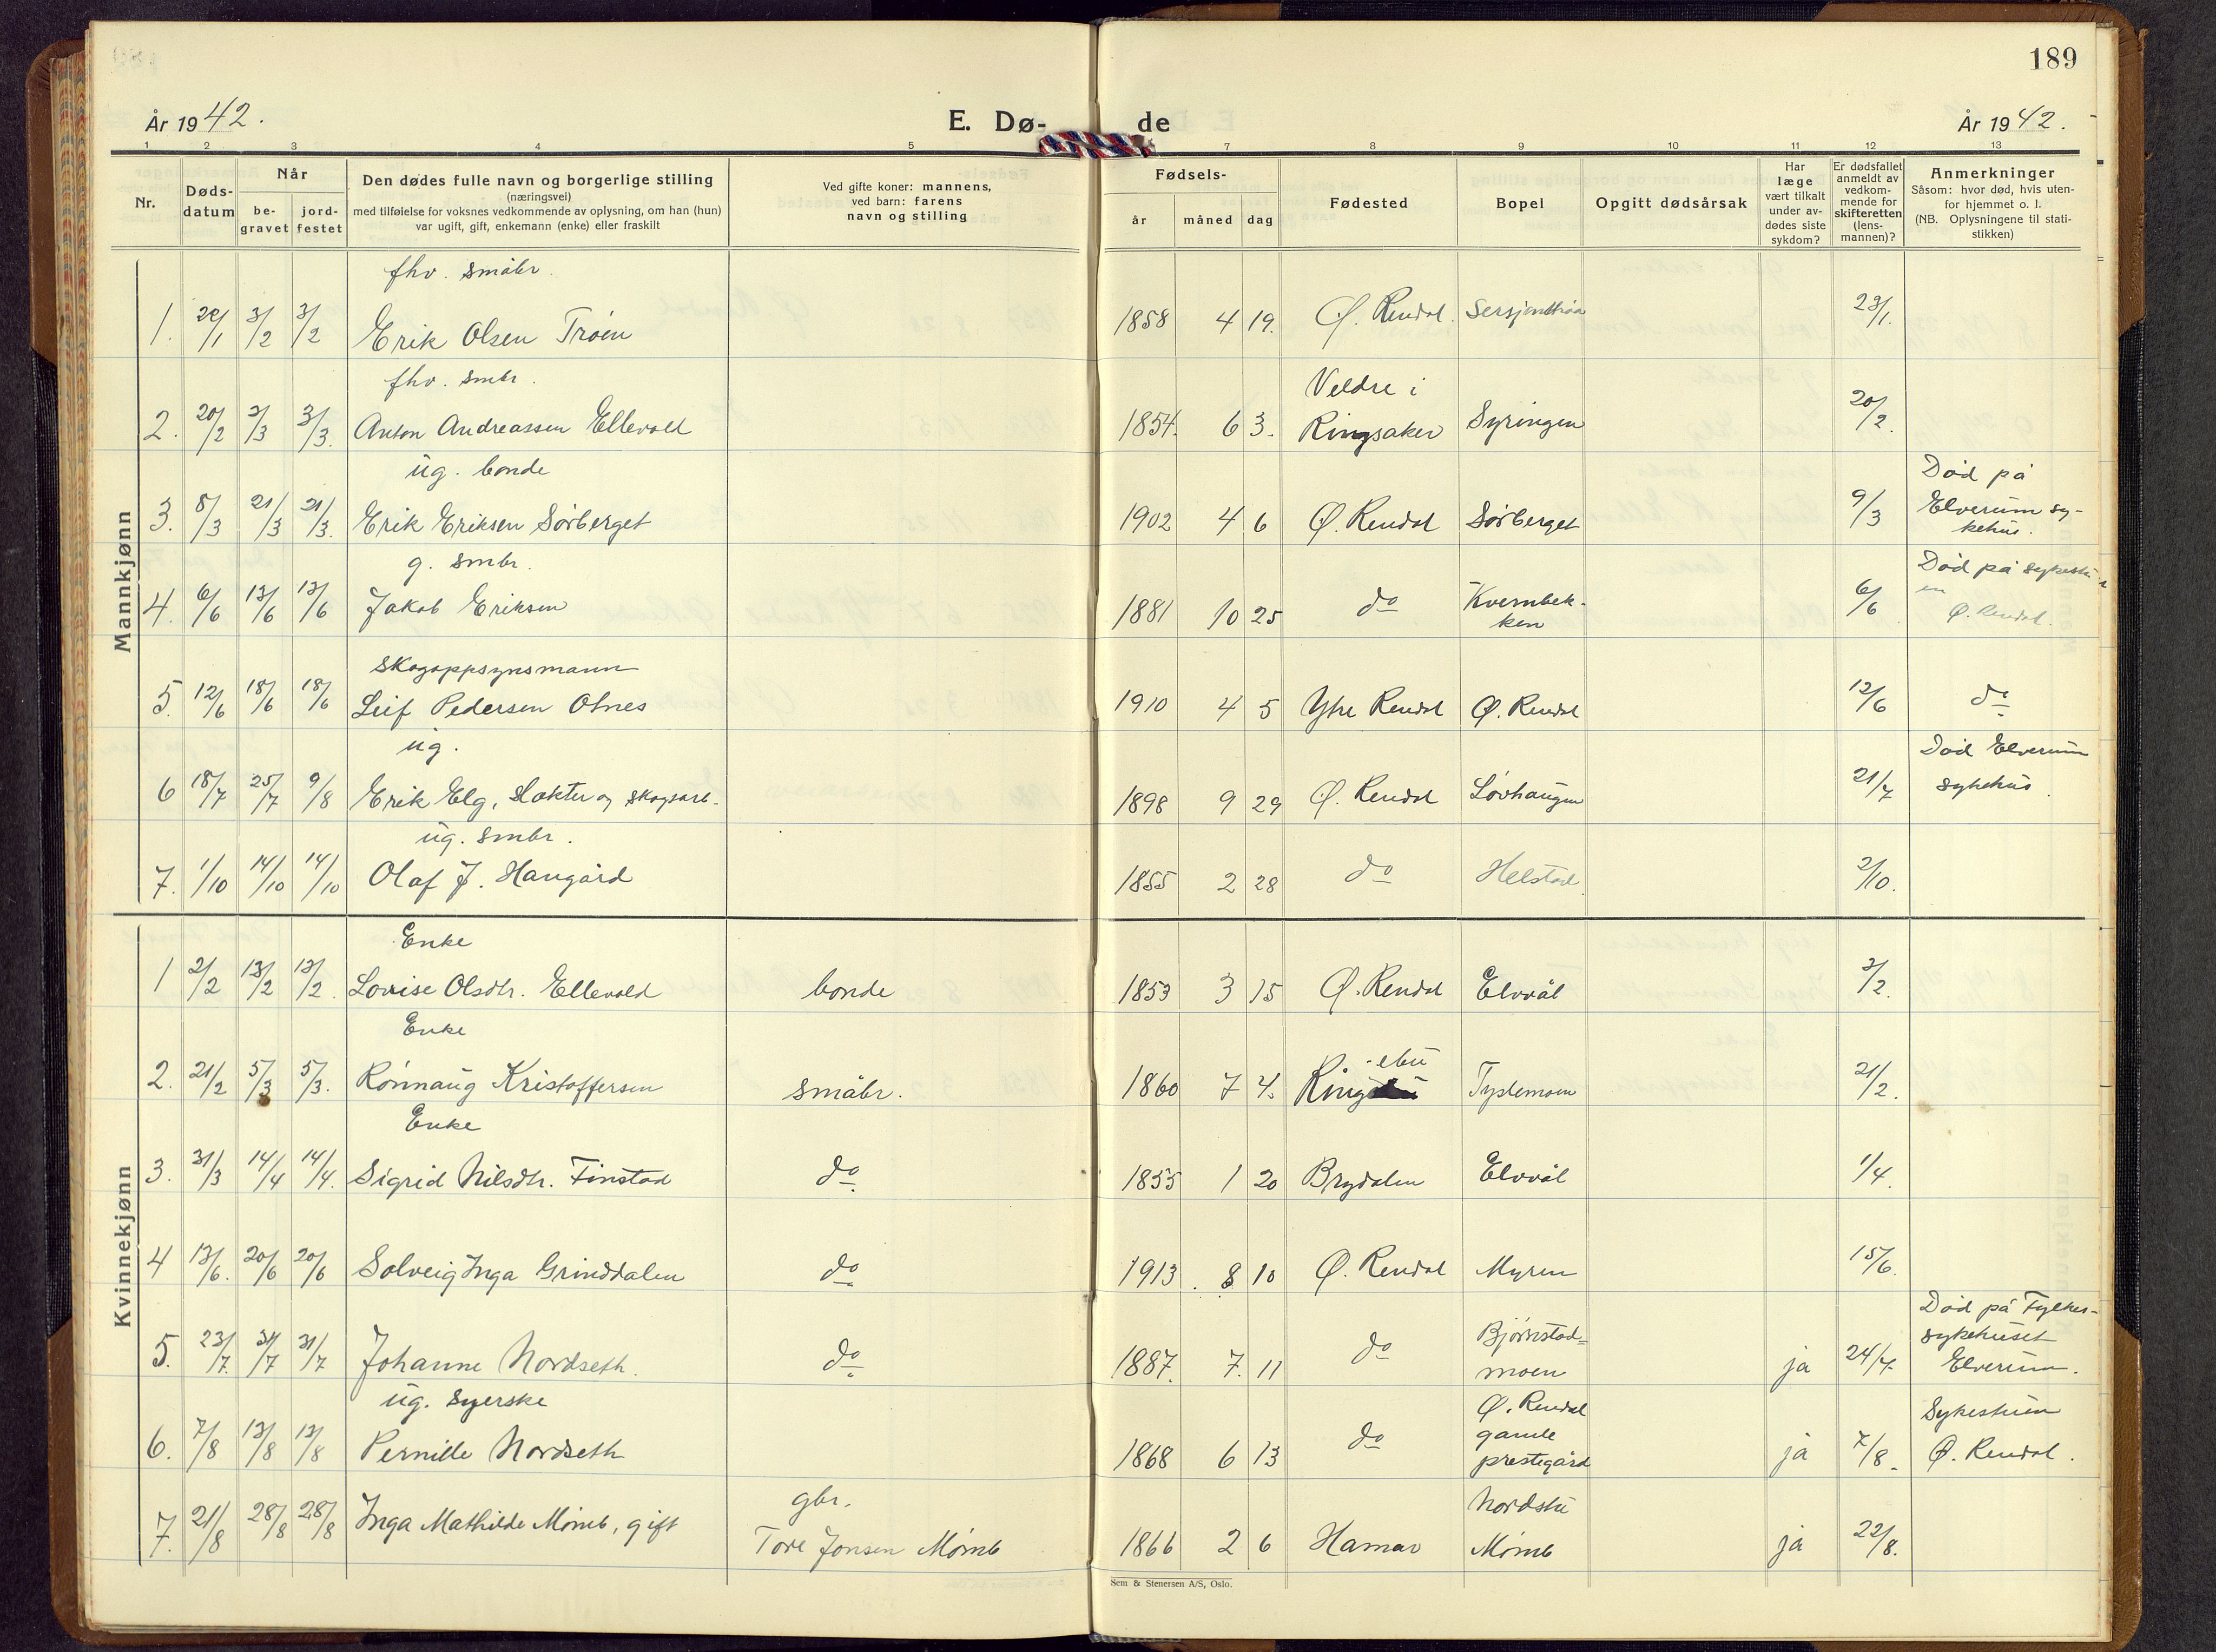 189
År 1942.
E. Dø-
de
År 1942.
1 2 3 4 5 7 8 9 10 11 12 13
Nr.
Døds-
datum
Når
be-
gravet
jord-
festet
Den dødes fulle navn og borgerlige stilling
(næringsvei)
med tilføielse for voksnes vedkommende av oplysning, om han (hun)
var ugift, gift, enkemann (enke) eller fraskilt
Ved gifte koner: mannens,
ved barn: farens
navn og stilling
Fødsels-
år måned dag
Fødested
Bopel
Opgitt dødsårsak
Har
læge
vært tilkalt
under av-
dødes siste
sykdom?
Er dødsfallet
anmeldt av
vedkom-
mende for
skifteretten
(lens-
mannen)?
Anmerkninger
Såsom: hvor død, hvis uten-
for hjemmet o. l.
(NB. Oplysningene til stati-
stikken)
Mannkjønn
fhv. småbr.
1. 3/2 3/2 Erik Olsen Trøen 1858 4 19. Ø. Rendal. 23/1.
fhv. smbr.
Veldre i
2. 20/2 3/3 3/3. Anton Andreassen Ellevold 1854. 6 3. Ringsaker Syringen 20/2.
ug. bonde
Død på
3. 8/3 21/3 21/3. Erik Eriksen Sørberget 1902 4 6 Ø. Rendal Sørberget 9/3 Elverum sy-
kehus.
g. smbr.
Død på
4. 6/6 13/6 13/6 Jakob Eriksen 1881 10 25 do Kvernbek-
ken 6/6 Ø. Rendal.
Skogoppsynsmann
5. 12/6 18/6 18/6 Leif Pedersen Otnes 1910 4 5 Ytre Rendal Ø. Rendal 12/6 do
ug.
Død Elverum
6 18/7 25/7 9/8 Erik Elg, slakter og skogsarb. 1898 9 29 Ø. Rendal Løvhaugen 21/7 sykehus.
ug. smbr.
7. 1/10 14/10 14/10 Olaf J. Haugård 1855 2 28 do Helstad 2/10.
Kvinnekjønn
Enke
1 2/2 13/2 13/2. Lovise Olsdtr. Ellevold bonde 1853 3 15 Ø. Rendal Elvål 3/2.
Enke
-ebu
2. 21/2 5/3 5/3. Rønnaug Kristoffersen småbr. 1860 7 4. Ring Tyslemoen 21/2.
Enke
3. 31/3 14/4 14/4. Sigrid Nilsdtr. Finstad do. 1855 1 20 Brydalen Elvål 1/4.
4 13/6. 20/6 20/6 Solveig Inga Grinddalen do. 1913. 8 10 Ø. Rendal Myren 15/6.
Død på Fylkes-
Bjørnstad- sykehuset
5. 23/7. 31/7 31/7 Johanne Nordseth. do. 1887. 7. 11 do moen ja 24/7. Elverum.
ug. syerske
Ø. Rendal Sykestuen
gamle
6. 7/8 13/8 13/8 Pernille Nordseth 1868 6 13 do prestegård ja 7/8. Ø. Rendal.
gbr.
Nordstu
7. 21/8 28/8 28/8 Inga Mathilde Mømb, gift Tore Jonsen Mømb 1866 2 6 Hamar Mømb ja 22/8.
Sem & Stenersen A/S, Oslo.